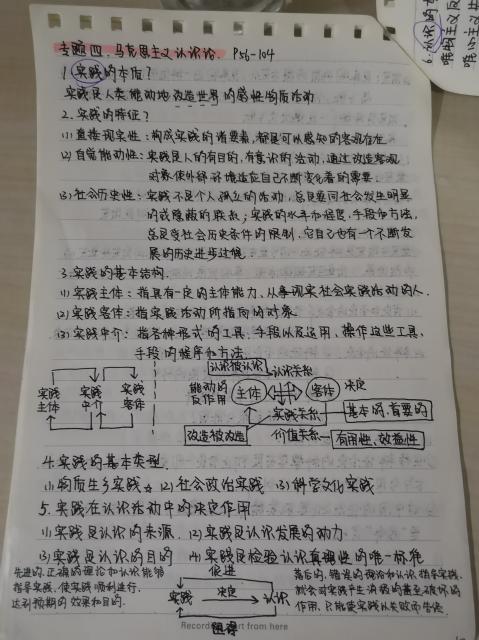 专题四、马克思主义认识论 P56-104
1.实践的本质?
实践是人类能动地改造世界的感性物质活动
2.实践的特征?
(1)直接现实性:构成实践的诸要素,都是可以感知的客观存在
(2)自觉能动性:实践是人的有目的,有意识的活动,通过改造客观
对象使外部环境适应自己不断变化着的需要
(3)社会历史性:实践不是个人孤立的活动,总是要同社会发生明显
的或隐蔽的联系;实践的水平和程度、手段和方法,
总是受社会历史条件的限制,它自己也有一个不断发
展的历史进步过程
3.实践的基本结构
(1)实践主体:指具有一定的主体能力、从事现实社会实践活动的人.
(2)实践客体:指实践活动所指向的对象
(3)实践中介:指各种形式的工具、手段以及运用、操作这些工具、
手段的程序和方法
认识被认识 认识关系
实践主体 实践中介 实践客体
能动的反作用 主体 客体 决定
实践关系 基本的,首要的
改造被改造 价值关系 有用性、效益性
4.实践的基本类型
(1)物质生产实践☆ (2)社会政治实践 (3)科学文化实践
5.实践在认识活动中的决定作用
(1)实践是认识的来源 (2)实践是认识发展的动力
(3)实践是认识的目的 (4)实践是检验认识真理性的唯一标准
先进的、正确的理论和认识能够
指导实践,使实践顺利进行,
达到预期的效果和目的.
促进
实践 决定 认识
阻碍
落后的、错误的理论和认识指导实践,
就会对实践产生消极的甚至破坏的
作用,只能使实践以失败而告终.
Record start from here
6.认识的
唯物主义反
唯心主义